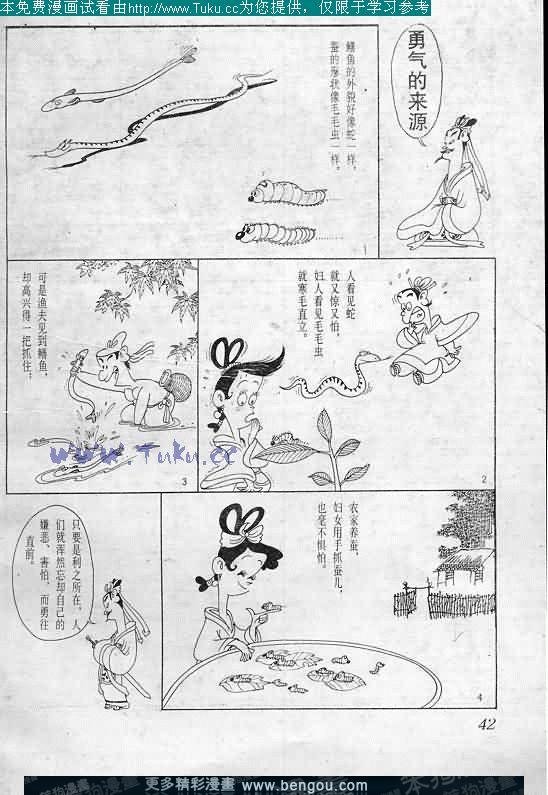 本免费漫画试看由http://www.Tuku.cc为您提供，仅限于学习参考
勇气的来源
鳝鱼的外貌好像蛇一样。
蚕的形状像毛毛虫一样。
1
人看见蛇
就又惊又怕，
妇人看见毛毛虫
就寒毛直立。
2
可是渔夫见到鳝鱼，
却高兴得一把抓住；
3
www.Tuku.cc
农家养蚕，
妇女用手抓蚕儿，
也毫不惧怕。
4
只要是利之所在，人
们就浑然忘却自己的
嫌恶、害怕，而勇往
直前。
42
更多精彩漫畫 www.bengou.com